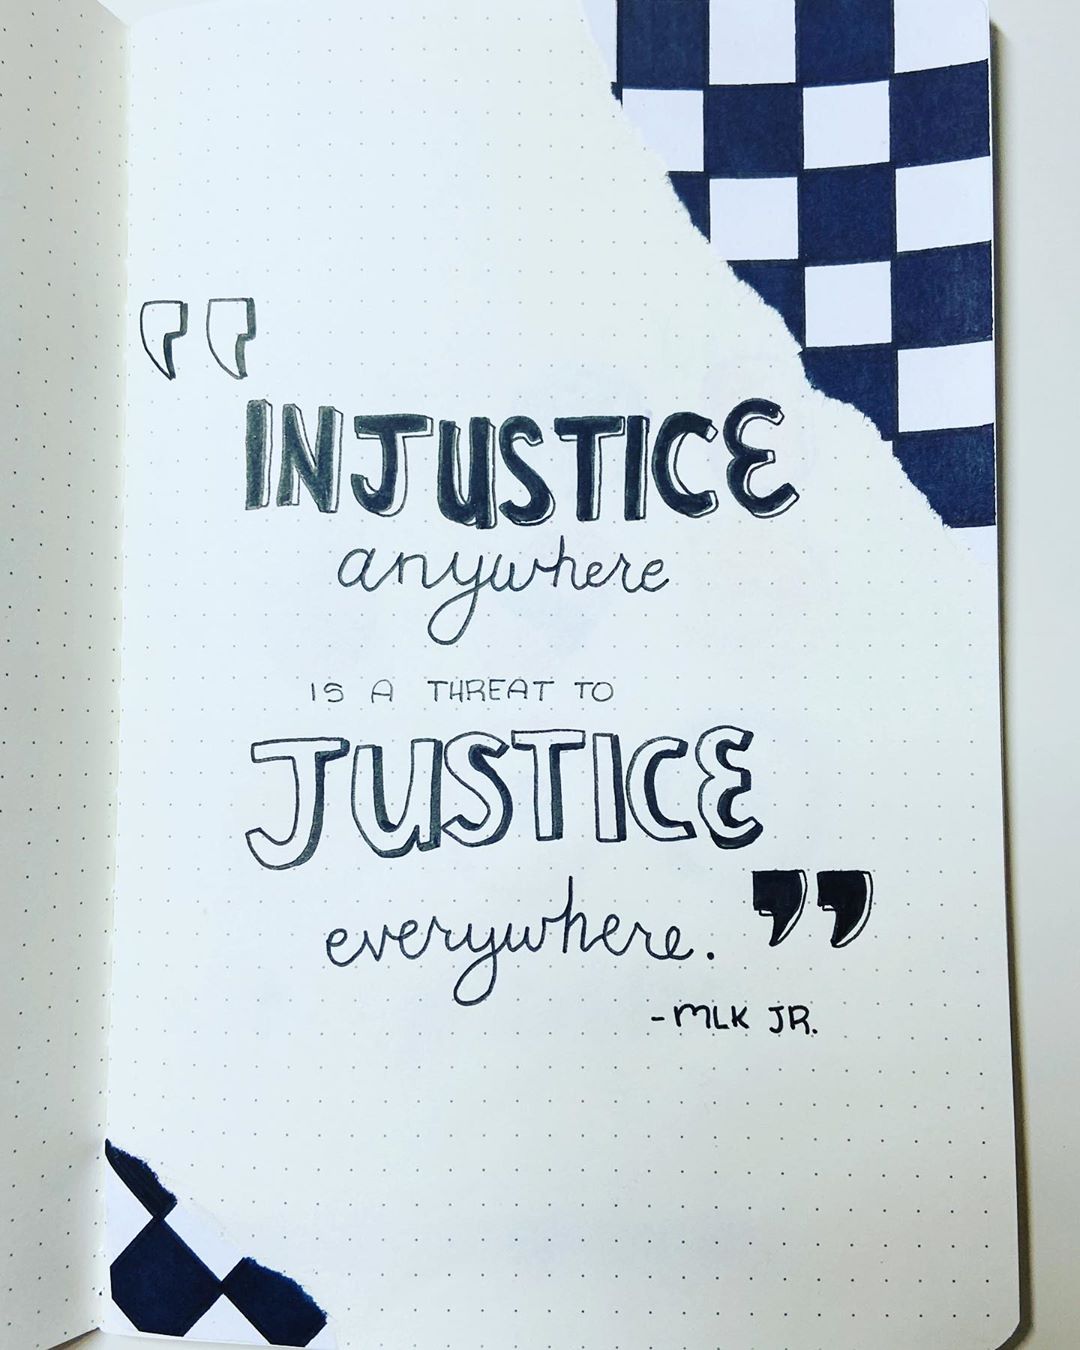 "INJUSTICE
anywhere
IS A THREAT TO
JUSTICE
everywhere."
-MLK JR.